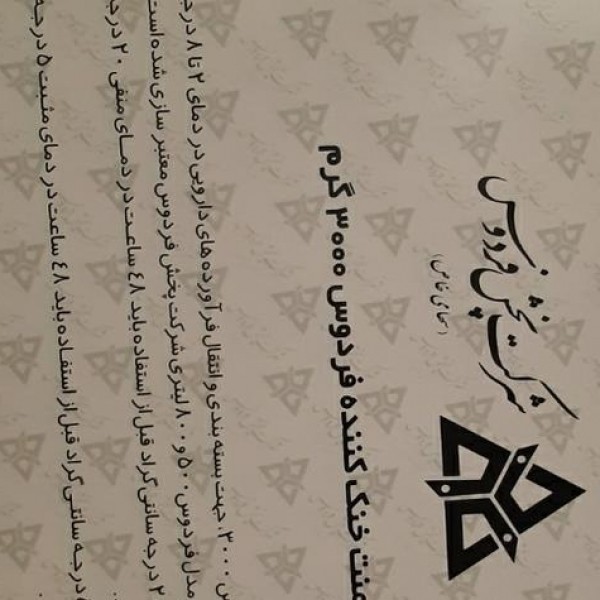 شرکت پخش فردوس
(سهامی خاص)
خنک کننده فردوس ۳۰۰۰ گرم
۳۰۰۰ جهت بسته بندی و انتقال فرآورده های دارویی در دمای ۲ تا ۸
مدل فردوس ۵۰۰ و ۸۰۰ لیتری شرکت پخش فردوس معتبر سازی شده است
۲ درجه سانتی گراد قبل از استفاده باید ۴۸ ساعت در دمای منفی ۲۰
درجه سانتی گراد قبل از استفاده باید ۴۸ ساعت در دمای مثبت ۵ درجه